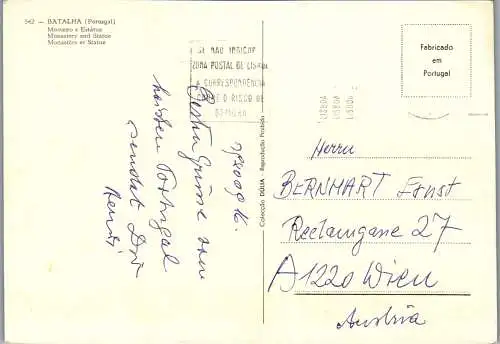 542 - BATALHA (Portugal)
Mosteiro e Estátua
Monastery and Statue
Monastère et Statue
SE NÃO INDICAR
ZONA POSTAL DE LISBOA
A CORRESPONDÊNCIA
CORRE O RISCO DE
DEMORAR
LISBOA
LISBOA
LISBOA
Fabricado
em
Portugal
Beste Grüsse vom
heissen Portugal
sendet Dir
Colecção DÚLIA - Reprodução Proibida
Herrn
BERNHART Ernst
Reclamgasse 27
A1220 Wien
Austria